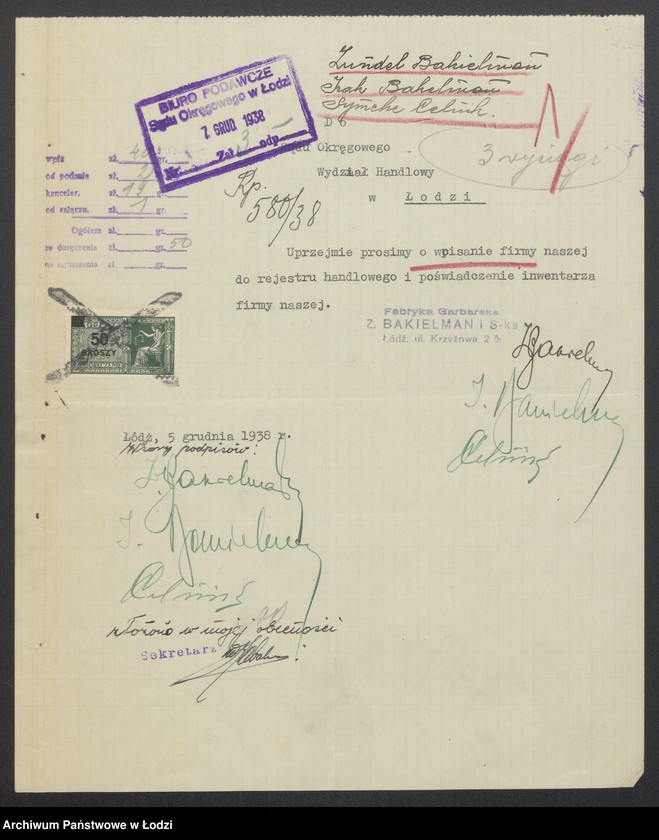 Zundel Bakielman
Icek Bakielman
Symcha Celnik.
BIURO PODAWCZE
Sądu Okręgowego w Łodzi
7 GRUD 1938
Nr. Zał. 3 odp.
D o
Sądu Okręgowego
Wydział Handlowy
w Łodzi
3 wyciągi
Rp. 580/38
wpis zł. 40 gr.
od podania zł. gr.
kanceler. zł. 19 gr.
od załączn. zł. 1 gr.
Ogółem zł. gr.
za doręczenie zł. gr. 50
na ogłoszenie zł. gr.
Uprzejmie prosimy o wpisanie firmy naszej
do rejestru handlowego i poświadczenie inwentarza
firmy naszej.
Fabryka Garbarska
Z. BAKIELMAN i S-ka
Łódź, ul. Krzyżowa 2
50
GROSZY
Łódź, 5 grudnia 1938 r.
Wzory podpisów:
złożono w mojej obecności
Sekretarz
Archiwum Państwowe w Łodzi